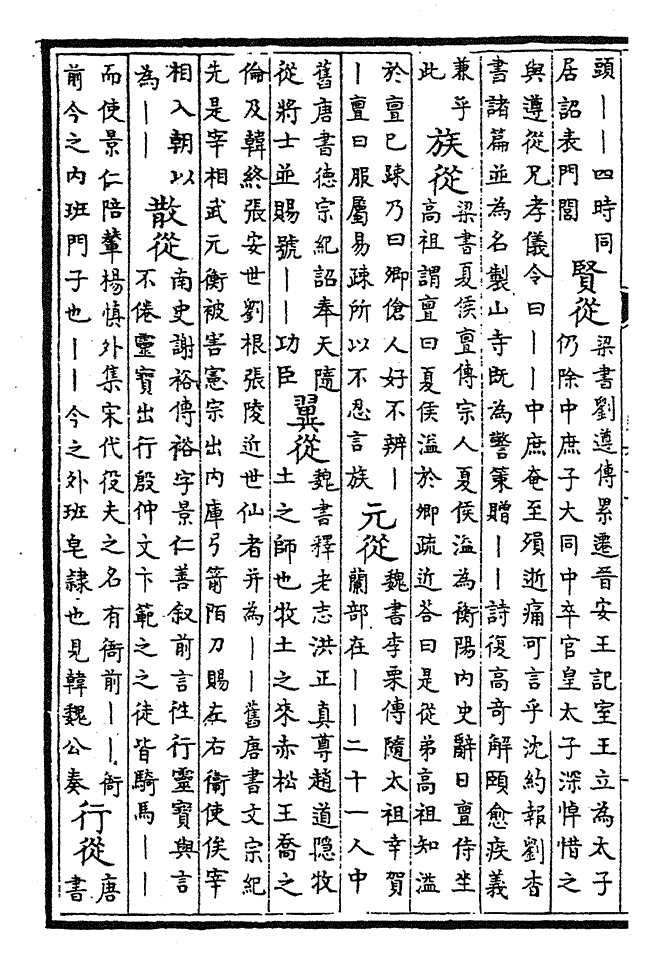 頭——四時同
居詔表門閭
賢從
梁書劉遵傳累遷晉安王記室王立為太子
仍除中庶子大同中卒官皇太子深悼惜之
與遵從兄孝儀令曰——中庶奄至殞逝痛可言乎沈約報劉杳
書諸篇並為名製山寺既為警策贈——詩復高奇解頤愈疾義
兼乎
此
族從
梁書夏侯亶傳宗人夏侯溢為衡陽內史辭日亶侍坐
高祖謂亶曰夏侯溢於卿疏近答曰是從弟高祖知溢
於亶已疎乃曰卿傖人好不辨—
—亶曰服屬易疎所以不忍言族
元從
魏書李栗傳隨太祖幸賀
蘭部在——二十一人中
舊唐書德宗紀詔奉天隨
從將士並賜號——功臣
翼從
魏書釋老志洪正真尊趙道隐牧
土之師也牧土之來赤松王喬之
倫及韓終張安世劉根張陵近世仙者并為——舊唐書文宗紀
先是宰相武元衡被害憲宗出內庫弓箭陌刀賜左右衛使俟宰
相入朝以
為——
散從
南史謝裕傳裕字景仁善叙前言往行靈寶與言
不倦靈寶出行殷仲文卞範之之徒皆騎馬——
而使景仁陪輦楊慎外集宋代役夫之名有衙前——衙
前今之內班門子也——今之外班皂隸也見韓魏公奏
行從
唐
書